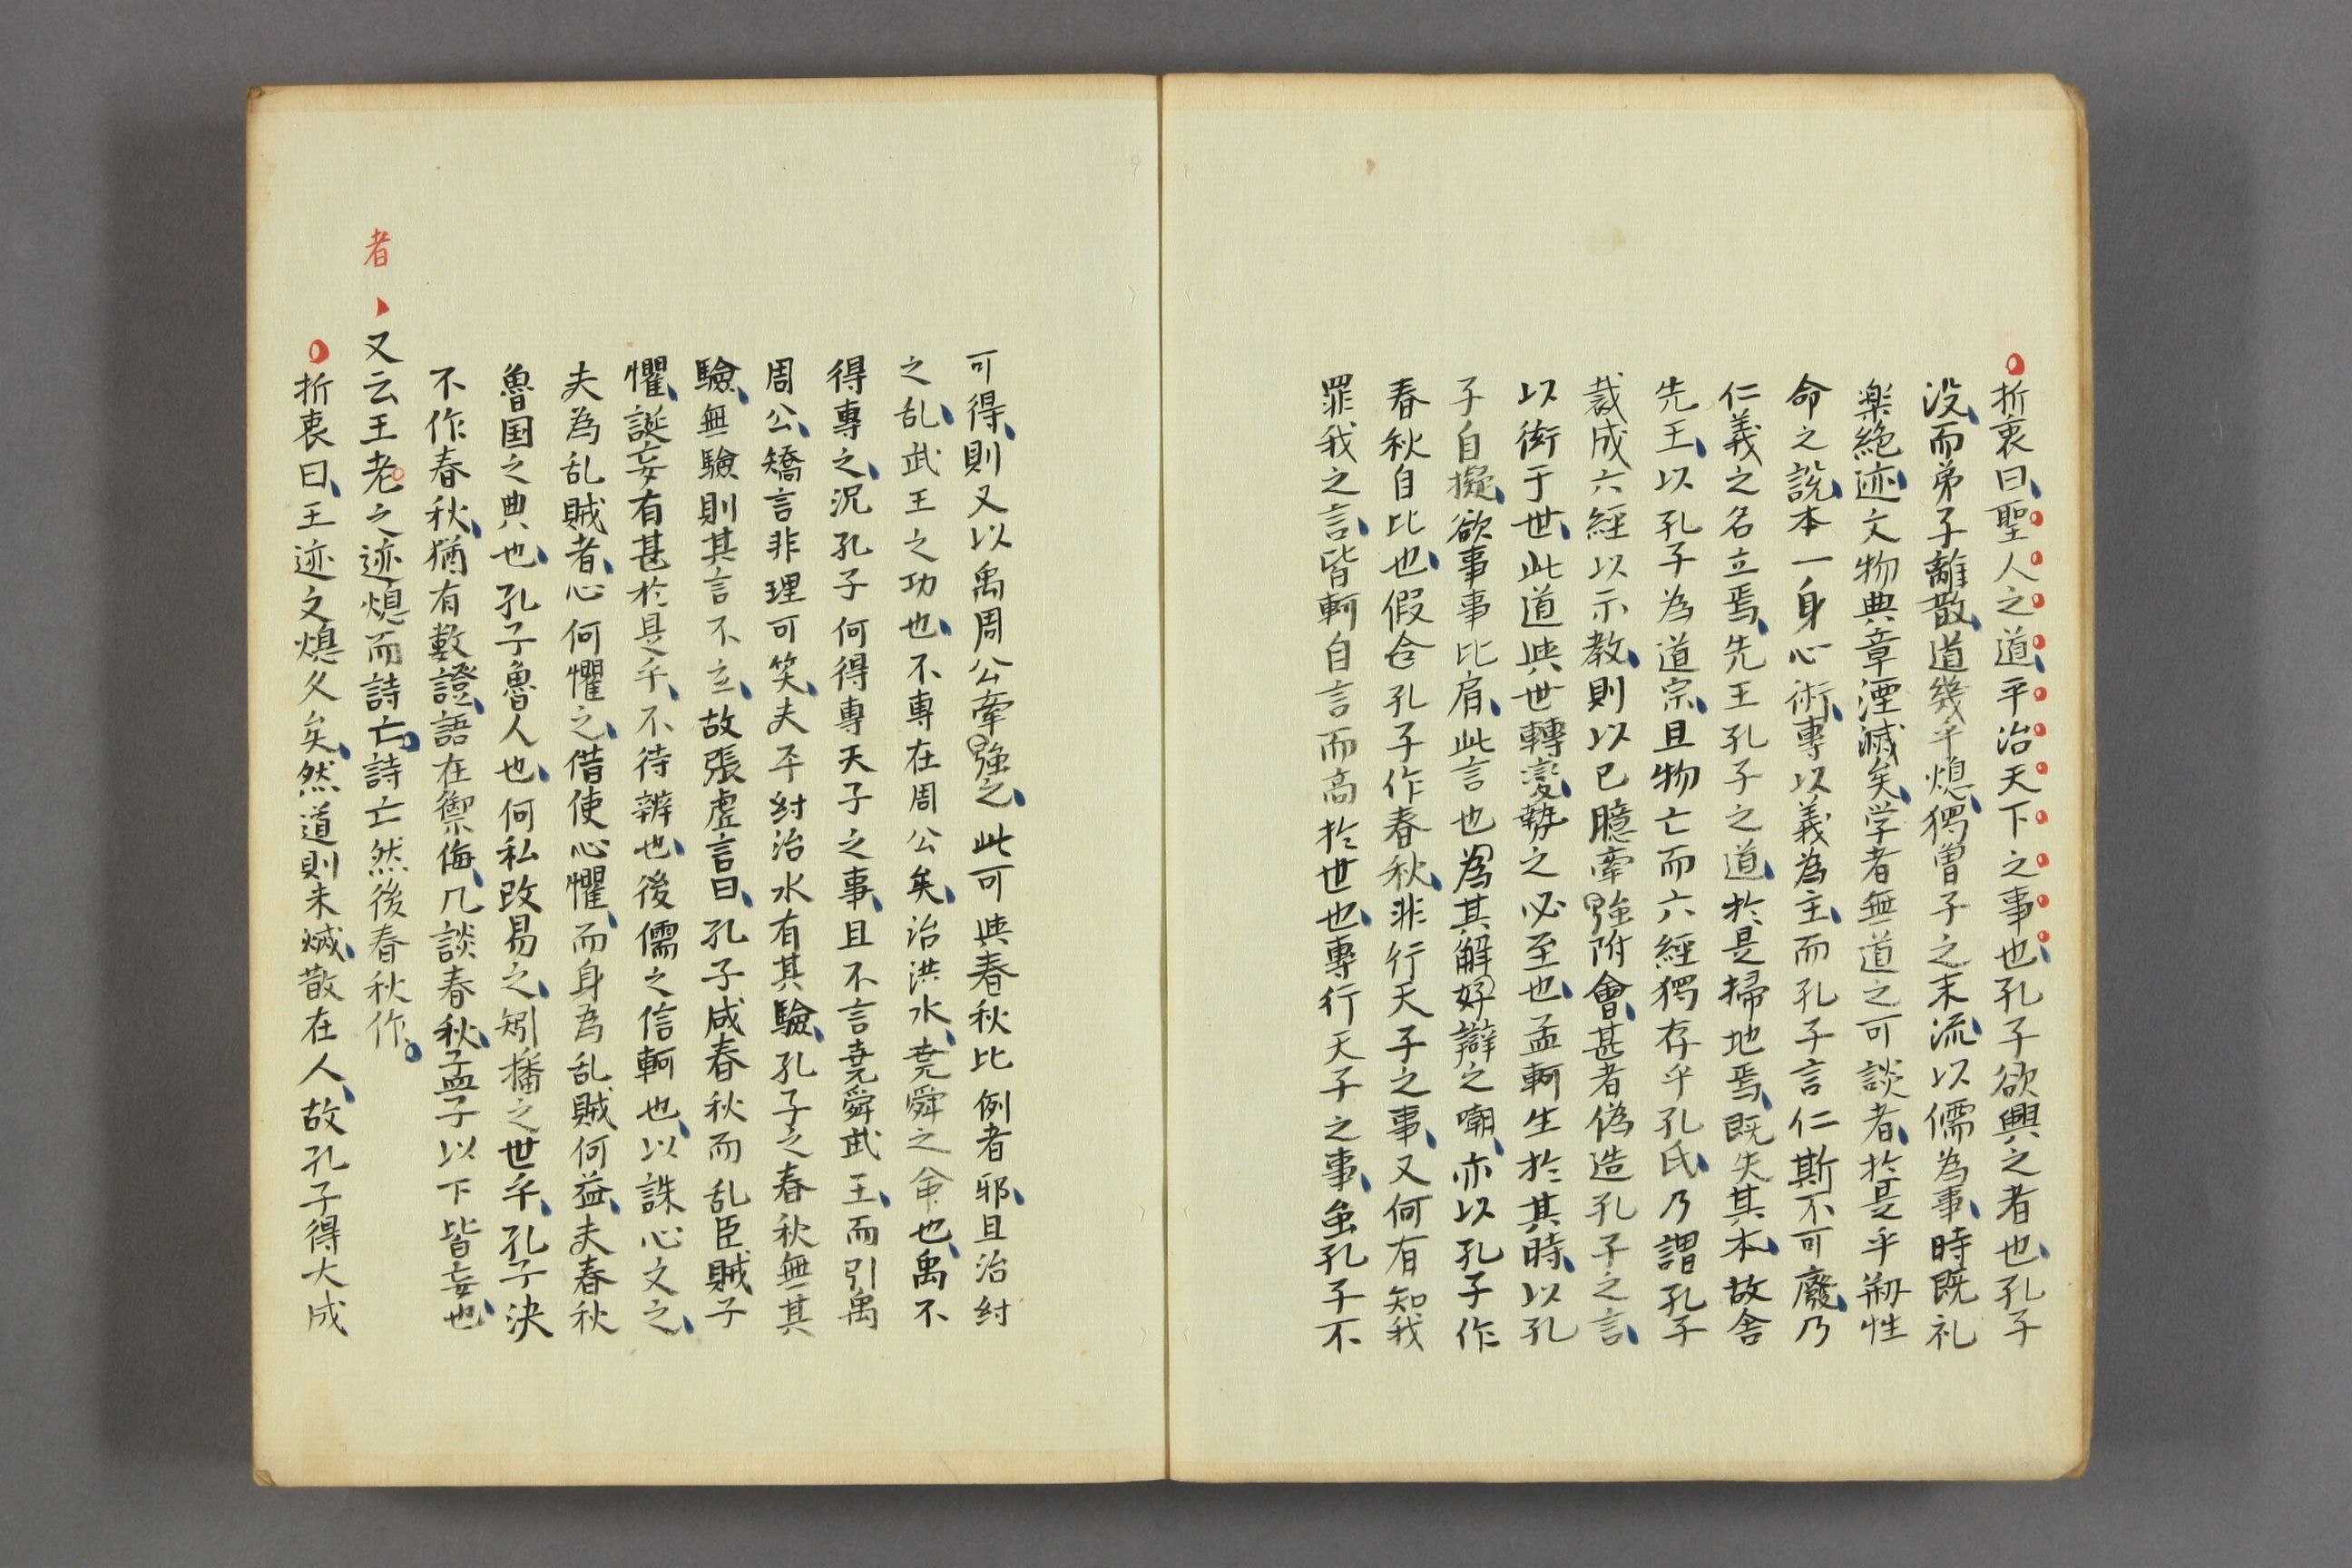 折衷曰聖人之道平治天下之事也孔子欲興之者也孔子
没而弟子離散道幾乎熄獨曽子之末流以儒為事時既礼
楽絶迹文物典章湮滅矣学者無道之可談者於是乎剏性
命之説本一身心術專以義為主而孔子言仁斯不可廢乃
仁義之名立焉先王孔子之道於是掃地焉既失其本故舎
先王以孔子為道宗且物亡而六經獨存乎孔氏乃謂孔子
裁成六經以示教則以已臆牽強附會甚者偽造孔子之言
以衒于世此道與世轉變勢之必至也孟軻生於其時以孔
子自擬欲事事比肩此言也為其解好辯之嘲亦以孔子作
春秋自比也假令孔子作春秋非行天子之事又何有知我
罪我之言皆軻自言而高於世也專行天子之事虽孔子不
可得則又以禹周公牽強之此可與春秋比例者邪且治紂
之乱武王之功也不專在周公矣治洪水尭舜之命也禹不
得專之況孔子何得專天子之事且不言尭舜武王而引禹
周公矯言非理可笑夫平紂治水有其驗孔子之春秋無其
驗無驗則其言不立故張虚言曰孔子成春秋而乱臣賊子
懼誕妄有甚於是乎不待辨也後儒之信軻也以誅心文之
夫為乱賊者心何懼之借使心懼而身為乱賊何益夫春秋
魯国之典也孔子魯人也何私改易之矧播之世乎孔子決
不作春秋猶有數證語在禦侮凡談春秋孟子以下皆妄也
者
又云王老之迹熄而詩亡詩亡然後春秋作
折衷曰王迹之熄久矣然道則未滅散在人故孔子得大成